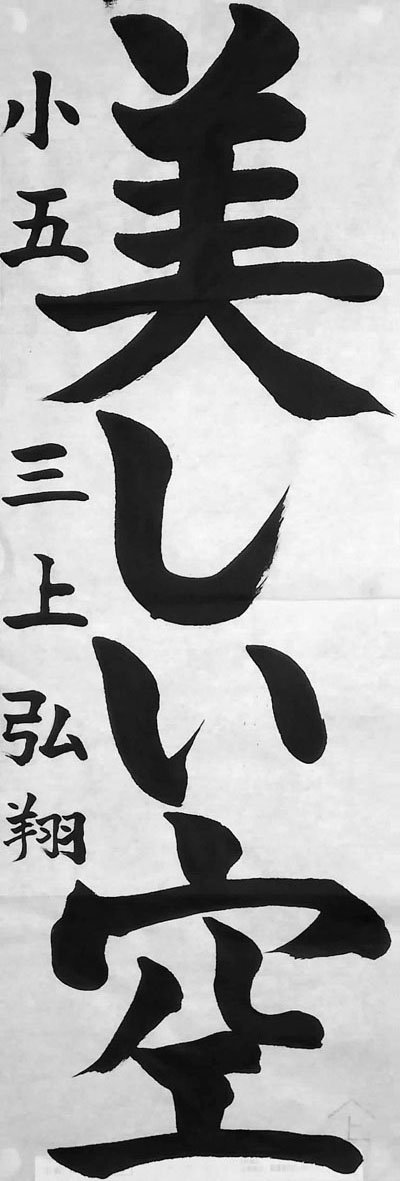 美しい空
小五 三上弘翔